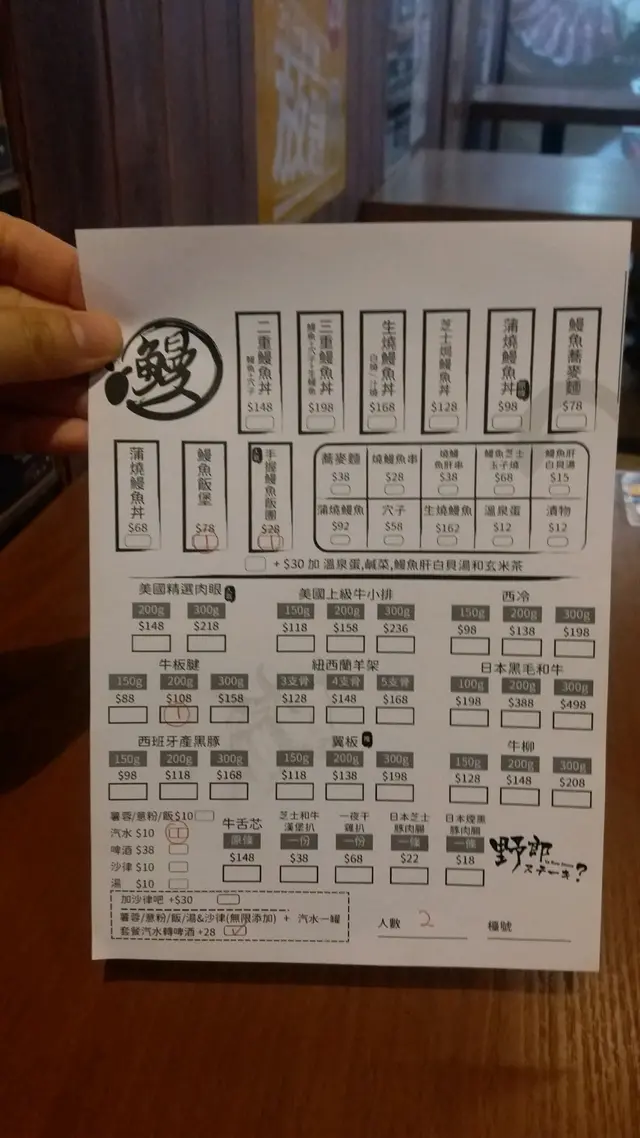 鰻
二重鰻魚丼 鰻魚+穴子 $148
三重鰻魚丼 鰻魚+穴子+生鰻魚 $198
生燒鰻魚丼 白燒/汁燒 $168
芝士焗鰻魚丼 $128
蒲燒鰻魚丼 $98
鰻魚蕎麥麵 $78
蒲燒鰻魚丼 $68
鰻魚飯堡 $78 1
手握鰻魚飯團 $28 1
蕎麥麵 燒鰻魚串 燒鰻魚肝串 鰻魚芝士玉子燒 鰻魚肝白貝湯
$38 $28 $38 $68 $15
蒲燒鰻魚 穴子 生燒鰻魚 溫泉蛋 漬物
$92 $58 $162 $12 $12
+ $30 加 溫泉蛋,鹹菜,鰻魚肝白貝湯和玄米茶
美國精選肉眼 美國上級牛小排 西冷
200g 300g 150g 200g 300g 150g 200g 300g
$148 $218 $118 $158 $236 $98 $138 $198
牛板腱 紐西蘭羊架 日本黑毛和牛
150g 200g 300g 3支骨 4支骨 5支骨 100g 200g 300g
$88 $108 $158 $128 $148 $168 $198 $388 $498
1
西班牙產黑豚 翼板 牛柳
150g 200g 300g 150g 200g 300g 150g 200g 300g
$98 $118 $168 $118 $138 $198 $128 $148 $208
薯蓉/意粉/飯$10
汽水 $10 1
啤酒 $38
沙律 $10
湯 $10
牛舌芯 原條 $148
芝士和牛漢堡扒 一份 $38
一夜干雞扒 一份 $68
日本芝士豚肉腸 一條 $22
日本煙熏豚肉腸 一條 $18
野郎
ステーキ?
加沙律吧 +$30
薯蓉/意粉/飯/湯&沙律(無限添加) + 汽水一罐
套餐汽水轉啤酒 +28
人數 2 檯號